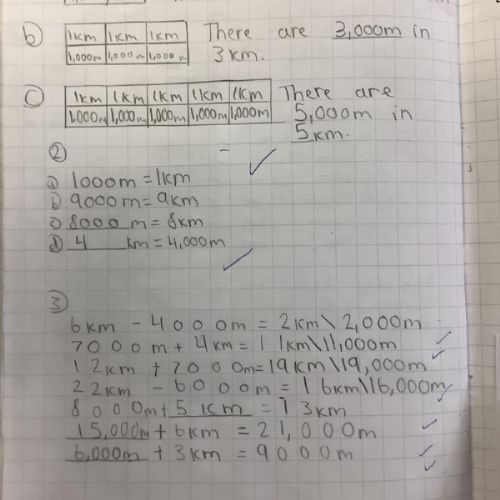 b) 1km 1km 1km There are 3,000m in
1,000m 1,000m 1,000m 3km.
c) 1km 1km 1km 1km 1km There are
1,000m 1,000m 1,000m 1,000m 1,000m 5,000m in
5km.
2
a) 1000m = 1km
b) 9000m = 9km
c) 8000m = 8km
d) 4 km = 4,000m
3
6km - 4000m = 2km\2,000m
7000m + 4km = 11km\11,000m
12km + 7000m = 19km\19,000m
22km - 6000m = 16km\16,000m
8000m + 5km = 13km
15,000m + 6km = 21,000m
6,000m + 3km = 9000m